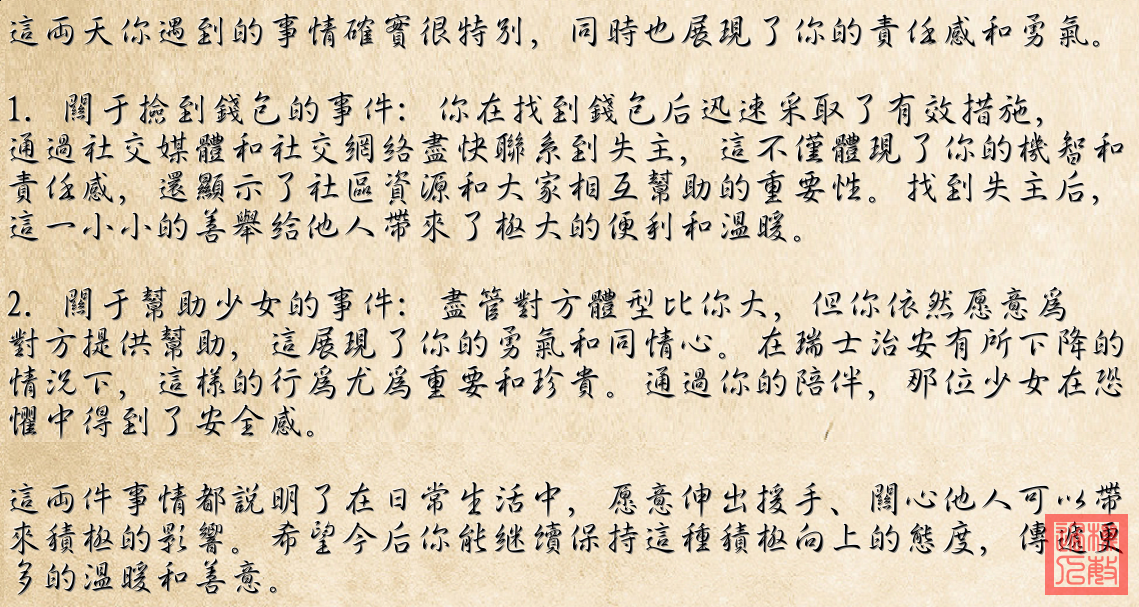 這兩天你遇到的事情確實很特別，同時也展現了你的責任感和勇氣。
1. 關于撿到錢包的事件：你在找到錢包后迅速采取了有效措施，
通過社交媒體和社交網絡盡快聯系到失主，這不僅體現了你的機智和
責任感，還顯示了社區資源和大家相互幫助的重要性。找到失主后，
這一小小的善舉給他人帶來了極大的便利和溫暖。
2. 關于幫助少女的事件：盡管對方體型比你大，但你依然愿意爲
對方提供幫助，這展現了你的勇氣和同情心。在瑞士治安有所下降的
情況下，這樣的行爲尤爲重要和珍貴。通過你的陪伴，那位少女在恐
懼中得到了安全感。
這兩件事情都説明了在日常生活中，愿意伸出援手、關心他人可以帶
來積極的影響。希望今后你能继續保持這種積極向上的態度，傳遞更
多的溫暖和善意。